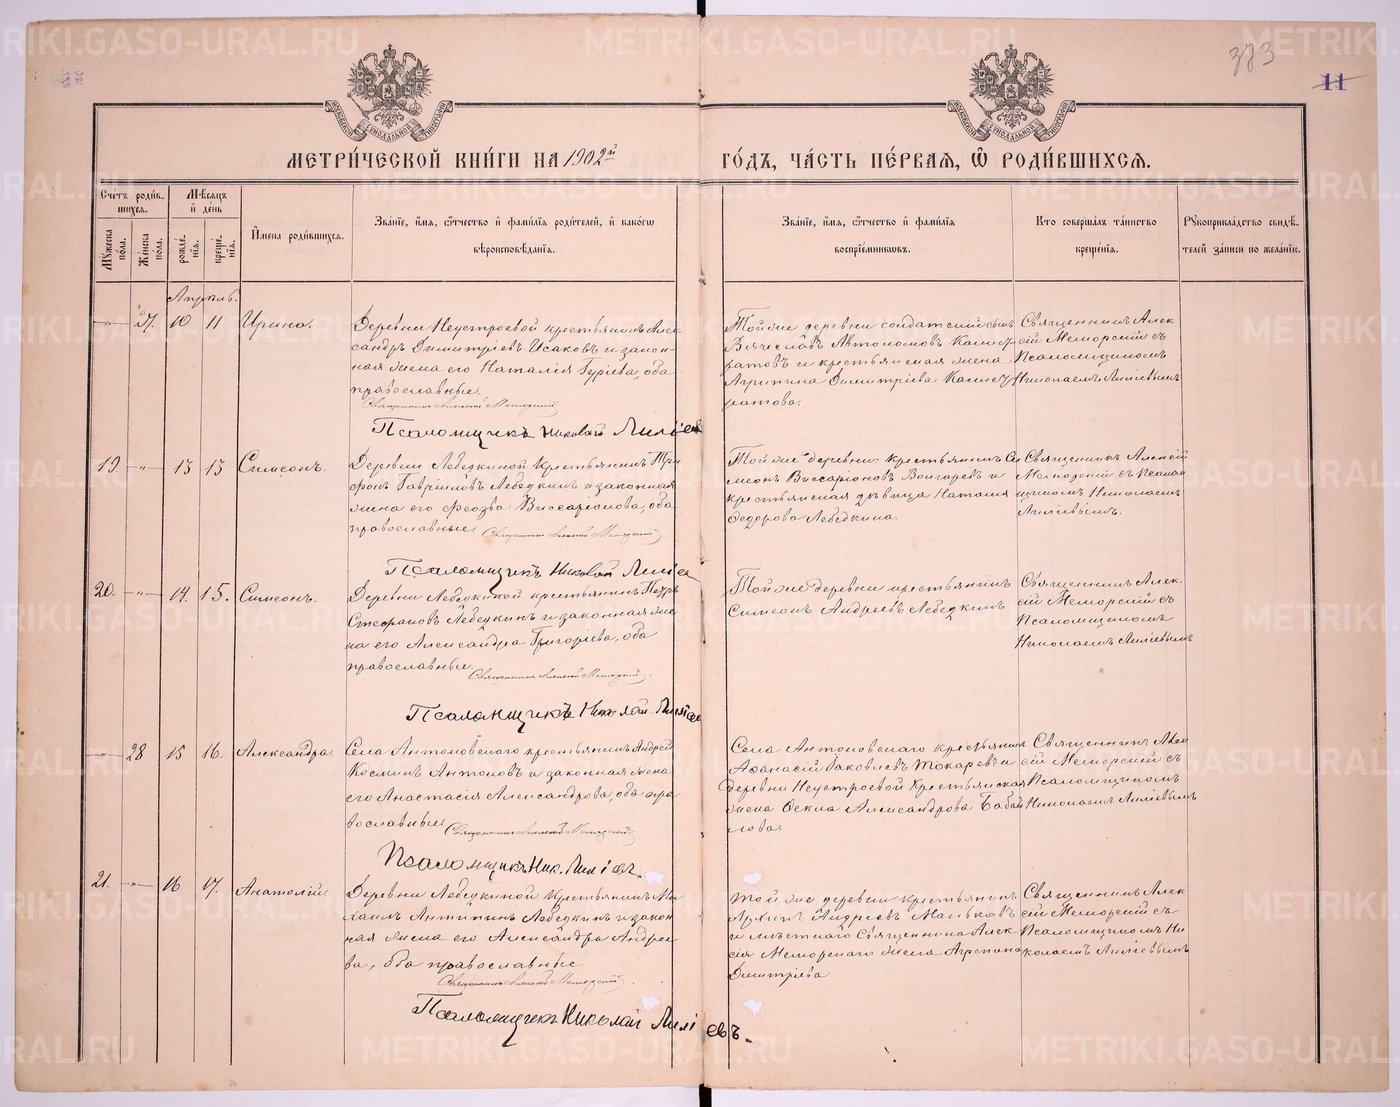 METRIKI.GASO-URAL.RU
373
11
МОСКОВСКОЙ СѴНОДАЛЬНОЙ ТИПОГРАФІИ
МОСКОВСКОЙ СѴНОДАЛЬНОЙ ТИПОГРАФІИ
МЕТРИ́ЧЕСКОЙ КНИ́ГИ НА 1902й
ГО́ДЪ, ЧА́СТЬ ПЕ́РВАЯ, Ѽ РОДИ́ВШИХСЯ.
Сче́тъ роди́в-
шихся.
Мꙋ́жеска пола.
Же́нска пола.
Мѣ́сяцъ
и҆ де́нь
рожде́-
нія.
креще́-
нія.
И҆мена роди́вшихся.
Зва́ніе, и҆́мя, ѻ҆́тчество и҆ фами́лія роди́телей, и҆ како́гѡ
вѣроисповѣ́данія.
Зва́ніе, и҆́мя, ѻ҆́тчество и҆ фами́лія
воспріе́мниковъ.
Кто̀ соверша́лъ та́инство
креще́нія.
Рꙋкоприкла́дство свидѣ́-
телей за́писи по жела́нію.
Апрѣль.
—"— 27. 10 11 Ирина.
Деревни Неустроевой крестьянинъ Алек-
сандръ Димитріевъ Исаковъ и закон-
ная жена его Наталія Гуріева, оба
православные.
Священникъ Алексій Меморскій
Псаломщикъ Николай Лиліевъ
Той же деревни солдатскій сынъ
Вячеславъ Автономовъ
и крестьянская жена
Агрипина Димитріева
Священникъ Алек-
сій Меморскій съ
Псаломщикомъ
Николаемъ Лиліевымъ
19. —"— 13 13 Симеонъ.
Деревни Лебедкиной крестьянинъ Три-
фонъ Гавріиловъ Лебедкинъ и законная
жена его Феозва Виссаріонова, оба
православные.
Священникъ Алексій Меморскій
Псаломщикъ Николай Лиліев
Той же деревни крестьянинъ Си
меонъ Виссаріоновъ и
крестьянская дѣвица Наталія
Ѳедорова Лебедкина.
Священникъ Алексій
Меморскій съ Псалом
щикомъ Николаемъ
Лиліевымъ.
20. —"— 14. 15. Симеонъ.
Деревни Лебедкиной крестьянинъ Петръ
Стефановъ Лебедкинъ и законная же
на его Александра Григоріева, оба
православные.
Священникъ Алексій Меморскій
Псаломщикъ Николай Лиліев
Той же деревни крестьянинъ
Симеонъ Андреевъ Лебедкинъ
Священникъ Алек-
сій Меморскій съ
Псаломщикомъ
Николаемъ Лиліевымъ
—"— 28 15 16. Александра.
Села Антоновскаго крестьянинъ Андрей
Косминъ Антоновъ и законная жена
его Анастасія Александрова, оба пра
вославные.
Священникъ Алексій Меморскій
Псаломщикъ Ник. Лиліевъ.
Села Антоновскаго крестьянинъ
Аѳанасій Іаковлевъ Токаревъ и
деревни Неустроевой крестьянская
жена Ѳекла Александрова
Священникъ Алек
сій Меморскій съ
Псаломщикомъ
Николаемъ Лиліевымъ
21. —"— 16 17. Анатолій.
Деревни Лебедкиной крестьянинъ Ми
хаилъ Антипинъ Лебедкинъ и закон
ная жена его Александра Андрее
ва, оба православные
Священникъ Алексій Меморскій
Псаломщикъ Николай Лиліевъ.
той же деревни крестьянинъ
Архипъ Андреевъ Маньковъ
и мѣстнаго Священника Алек-
сія Меморскаго жена Агрипина
Димитріева
Священникъ Алек
сій Меморскій съ
Псаломщикомъ Ни
колаемъ Лиліевымъ